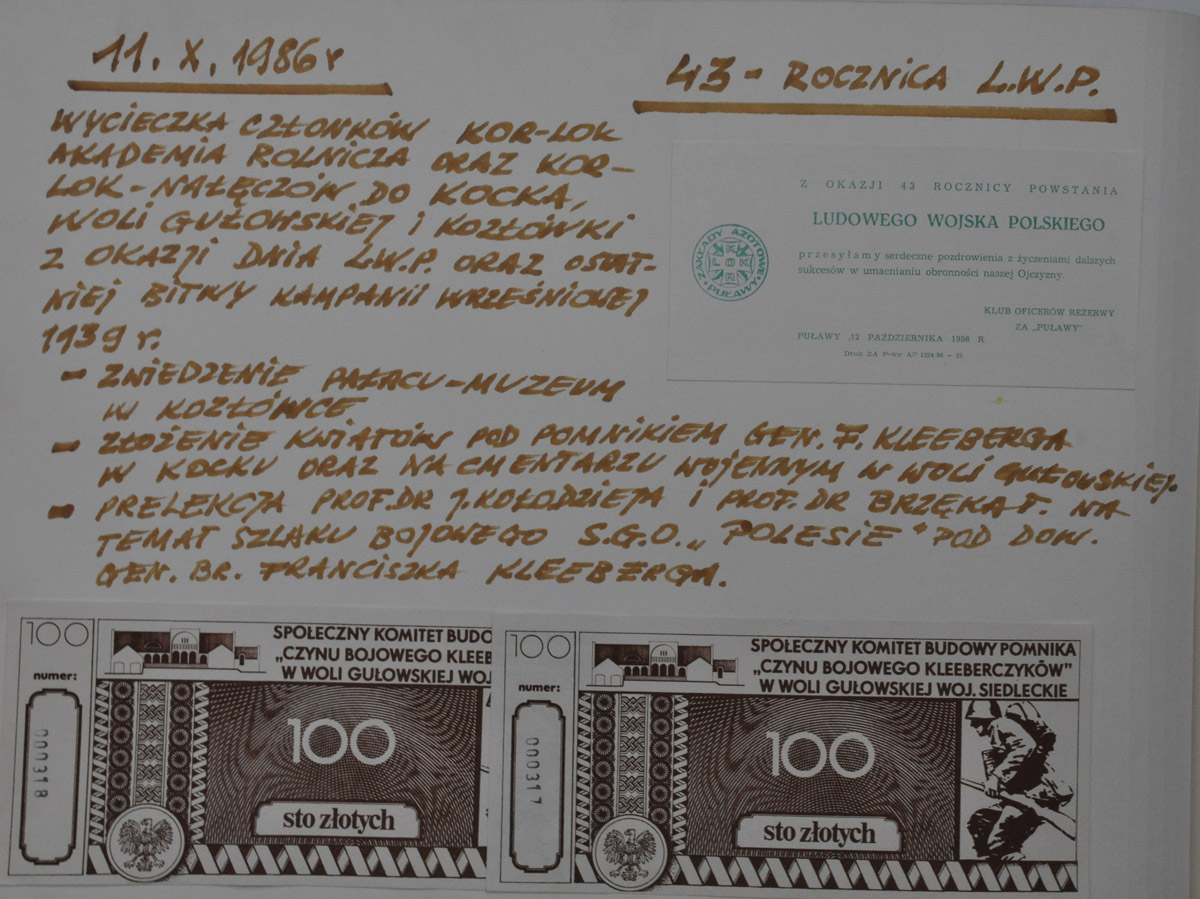 11. X. 1986 r
43 - ROCZNICA L.W.P.
WYCIECZKA CZŁONKÓW KOR-LOK
AKADEMIA ROLNICZA ORAZ KOR-
LOK-NAŁĘCZÓW, DO KOCKA,
WOLI GUŁOWSKIEJ I KOZŁÓWKI
Z OKAZJI DNIA L.W.P. ORAZ OSTAT-
NIEJ BITWY KAMPANII WRZEŚNIOWEJ
1939 r.
- ZWIEDZENIE PAŁACU-MUZEUM
W KOZŁÓWCE
- ZŁOŻENIE KWIATÓW POD POMNIKIEM GEN. F. KLEEBERGA
W KOCKU ORAZ NA CMENTARZU WOJENNYM W WOLI GUŁOWSKIEJ.
- PRELEKCJA PROF.DR J.KOŁODZIEJA I PROF.DR BRZĘKA F. NA
TEMAT SZLAKU BOJOWEGO S.G.O. „POLESIE" POD DOW.
GEN. BR. FRANCISZKA KLEEBERGA.
Z OKAZJI 43 ROCZNICY POWSTANIA
LUDOWEGO WOJSKA POLSKIEGO
przesyłamy serdeczne pozdrowienia z życzeniami dalszych
sukcesów w umacnianiu obronności naszej Ojczyzny.
KLUB OFICERÓW REZERWY
ZA „PUŁAWY"
PUŁAWY 12 PAŹDZIERNIKA 1986 R.
Druk ZA P-wy
ZAKŁADY AZOTOWE
PUŁAWY
K
LOK
R
100
numer:
000318
SPOŁECZNY KOMITET BUDO
„CZYNU BOJOWEGO KLEEB
W WOLI GUŁOWSKIEJ WOJ
100
sto złotych
100
numer:
000317
SPOŁECZNY KOMITET BUDOWY POMNIKA
„CZYNU BOJOWEGO KLEEBERCZYKÓW"
W WOLI GUŁOWSKIEJ WOJ. SIEDLECKIE
100
sto złotych